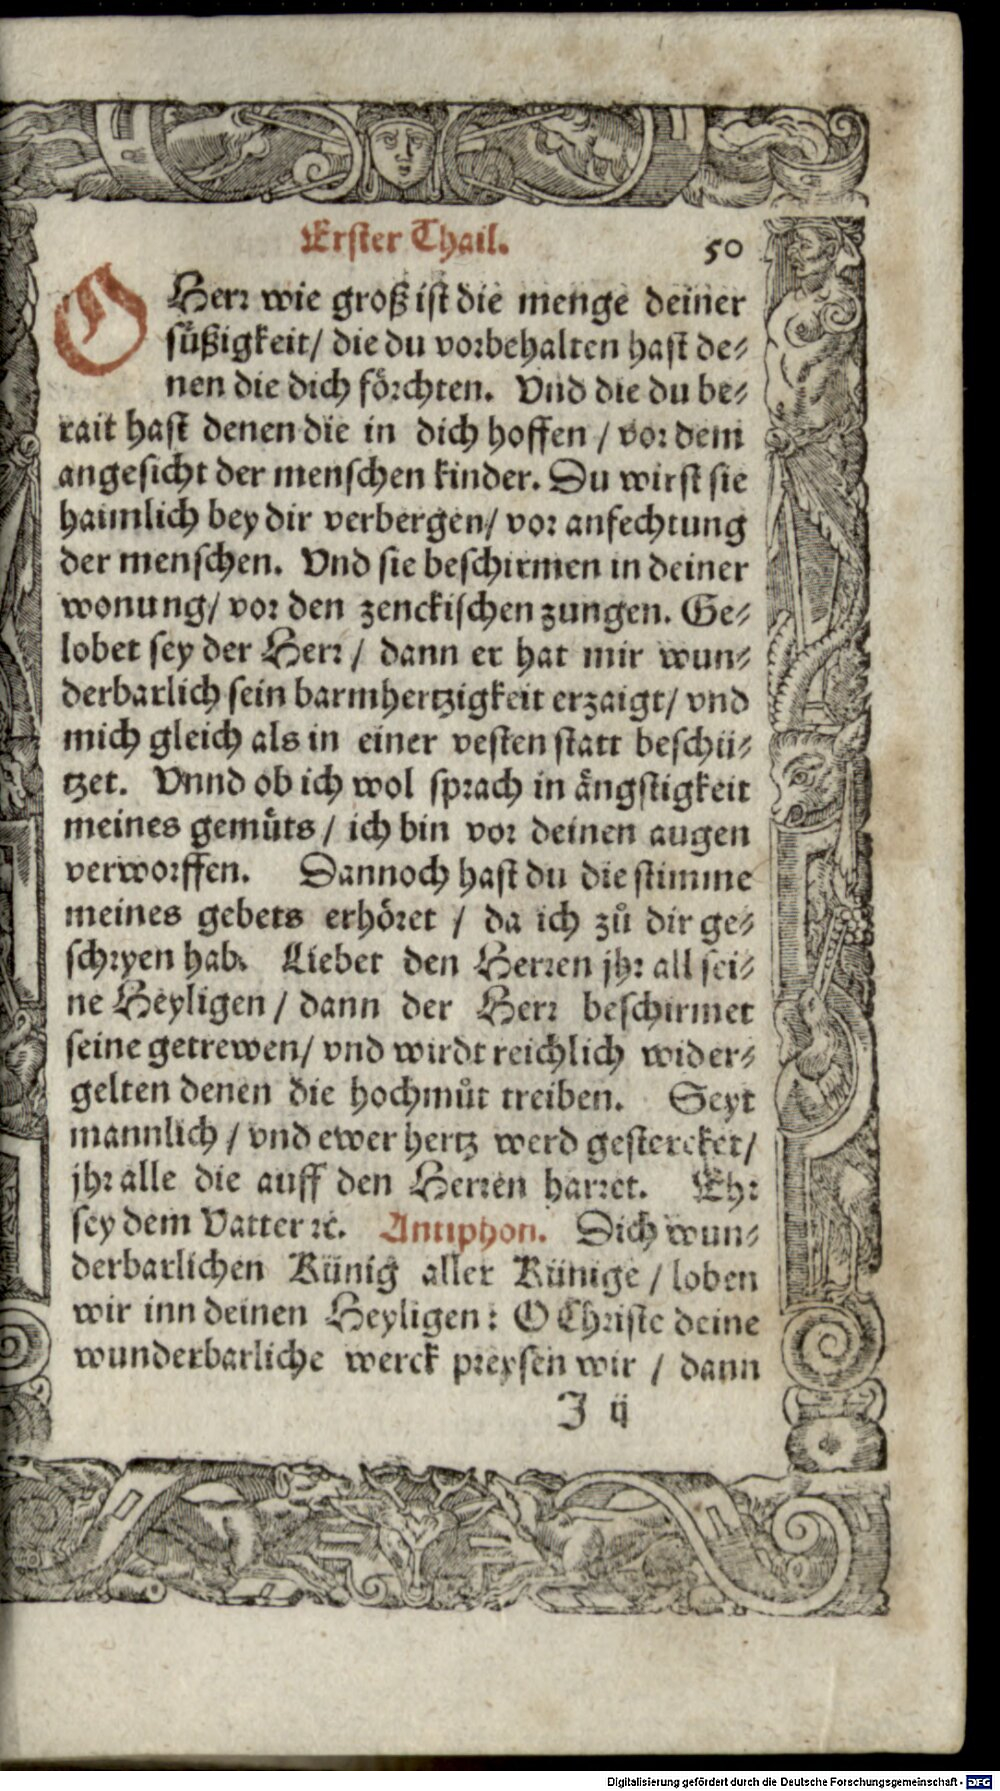 Erster Thail. 50
O Herr wie groß ist die menge deiner
süßigkeit/ die du vorbehalten hast de-
nen die dich förchten. Vnd die du be-
rait hast denen die in dich hoffen / vor dem
angesicht der menschen kinder. Du wirst sie
haimlich bey dir verbergen/ vor anfechtung
der menschen. Vnd sie beschirmen in deiner
wonung/ vor den zenckischen zungen. Ge-
lobet sey der Herr / dann er hat mir wun-
derbarlich sein barmhertzigkeit erzaigt/ vnd
mich gleich als in einer vesten statt beschü-
tzet. Vnnd ob ich wol sprach in ängstigkeit
meines gemüts / ich bin vor deinen augen
verworffen. Dannoch hast du die stimme
meines gebets erhöret / da ich zů dir ge-
schryen hab. Liebet den Herren jhr all sei-
ne Heyligen / dann der Herr beschirmet
seine getrewen/ vnd wirdt reichlich wider-
gelten denen die hochmůt treiben. Seyt
mannlich / vnd ewer hertz werd gestercket/
jhr alle die auff den Herren harret. Ehr
sey dem Vatter ꝛc. Antiphon. Dich wun-
derbarlichen Künig aller Künige / loben
wir inn deinen Heyligen: O Christe deine
wunderbarliche werck preysen wir / dann
J ij
Digitalisierung gefördert durch die Deutsche Forschungsgemeinschaft - DFG